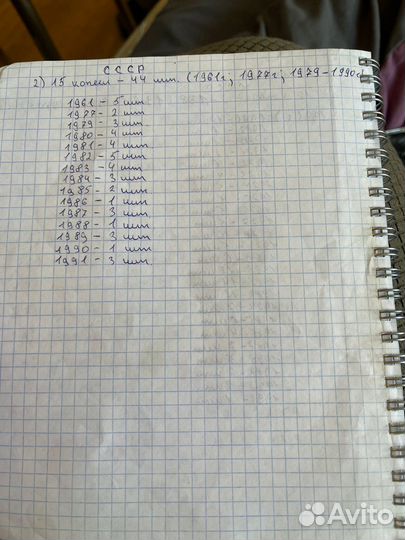 СССР
2) 15 копеек - 44 шт. (1961г; 1977г; 1979-1990г)
1961 - 5 шт
1977 - 2 шт
1979 - 3 шт.
1980 - 4 шт
1981 - 4 шт
1982 - 5 шт
1983 - 4 шт
1984 - 3 шт
1985 - 2 шт
1986 - 1 шт
1987 - 3 шт
1988 - 1 шт
1989 - 3 шт
1990 - 1 шт
1991 - 3 шт
Avito